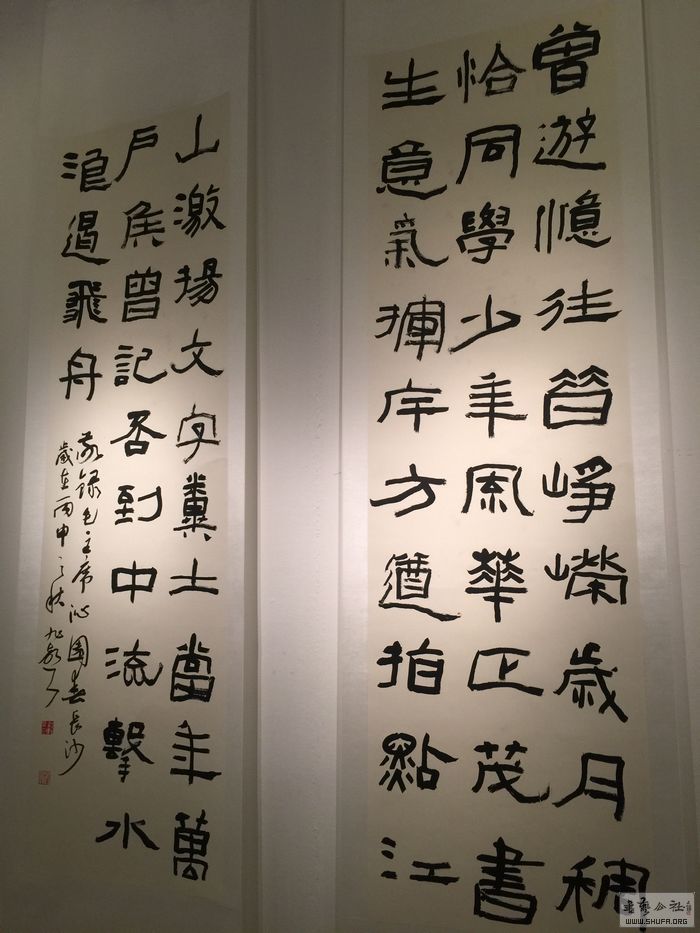 曾遊憶往昔崢嶸歲月稠
恰同學少年風華正茂書
生意氣揮斥方遒指點江
山激揚文字糞土當年萬
戶侯曾記否到中流擊水
浪遏飛舟
敬録毛主席沁園春長沙
歲在丙申之秋
書藝公社
WWW.SHUFA.ORG